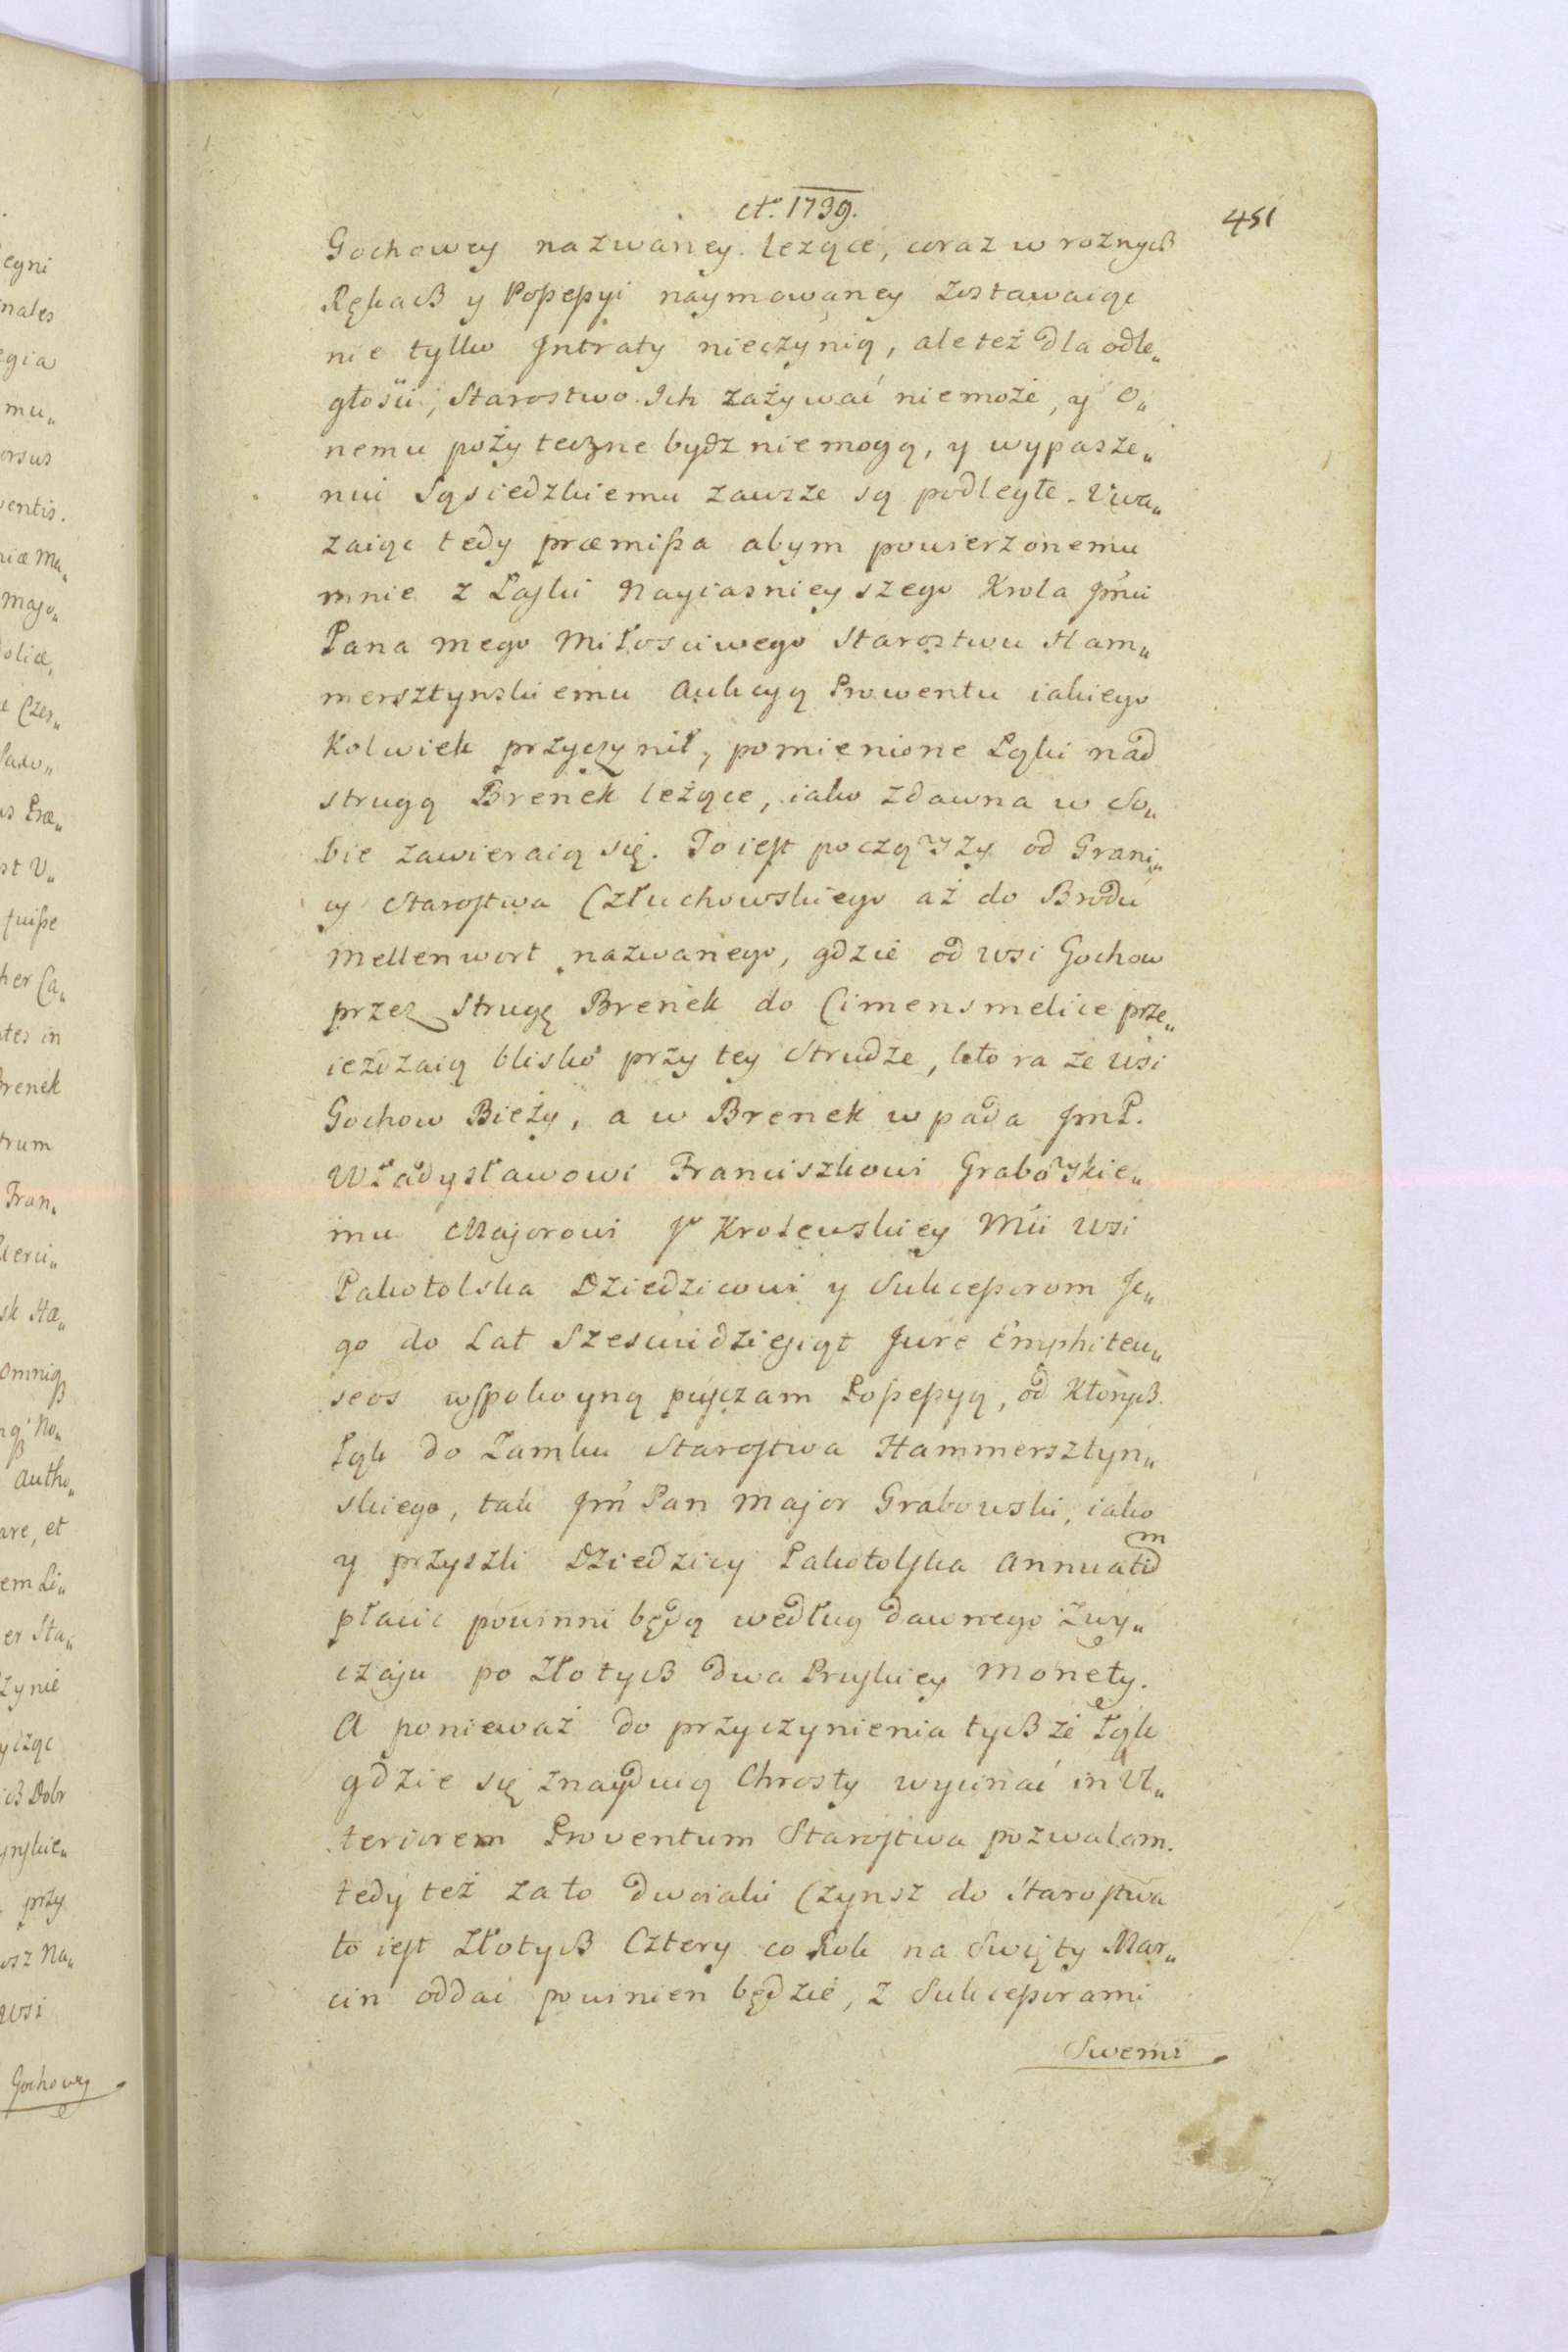 Ao. 1739.
451
Gochowey nazwaney leżące, coraz w rożnych
Rękach y Possessyi naymowaney zostawaiąc
nie tylko Jntraty nieczynią, ale też dla odle„
głości, Starostwo Jch zażywać niemoże, y o„
nemu pożyteczne bydz niemogą, y wypasze„
niu Sąsiedzkiemu zawsze są podległe. Uwa„
zaiąc tedy præmissa abym powierzonemu
mnie z Łaski Nayiasnieyszego Krola Jmci
Pana mego Miłosciwego Starostwu Ham„
mersztynskiemu Aukcyą Prowentu iakiego
Kolwiek przyczynił, pomienione Łąki nad
strugą Brenek leżące, iako zdawna w So„
bie zawieraią się. To iest począwszy od Grani„
cy Starostwa Człuchowskiego aż do Brodu
Mellenwort nazwanego, gdzie od wsi Gochow
przez Strugę Brenek do Cimensmelice prze„
ieżdzaią blisko przy tey Strudze, ktora ze wsi
Gochow Bieży, a w Brenek wpada JmP.
Władysławowi Franciszkowi Grabowskie„
mu Majorowi Jo Krolewskiey Mci wsi
Pakotolska Dziedzicowi y Sukcessorom Je„
go do Lat Szescidziesiąt Jure Emphiteu„
seos wspokoyną pusczam Possessyą, od Ktorych
Łąk do Zamku Starostwa Hammersztyn„
skiego, tak Jm Pan Major Grabowski, iako
y przyszli Dziedzicy Pakotolska Annuatim
płacic powinni będą według dawnego Zwy„
czaju po Złotych dwa Pruskiey Monety.
A ponieważ do przyczynienia tychże Łąk
gdzie się znayduią Chrosty wycinać in Ul„
teriorem Proventum Starostwa pozwalam.
tedy też zato dwoiaki Czynsz do Starostwa
to iest Złotych Cztery co Rok na Swięty Mar„
cin oddać powinien będzie, z Sukcessorami
Swemi